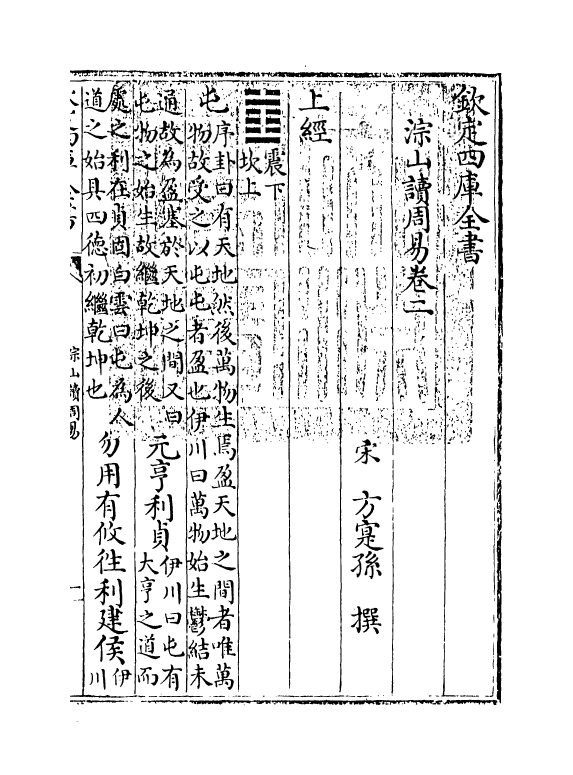 欽定四庫全書
淙山讀周易卷二
宋 方寔孫 撰
上經
䷂
震下
坎上
屯
序卦曰有天地然後萬物生焉盈天地之間者唯萬
物故受之以屯屯者盈也伊川曰萬物始生鬱結未
通故為盈塞於天地之間又曰
屯物之始生故繼乾坤之後
元亨利貞
伊川曰屯有
大亨之道而
處之利在貞固白雲曰屯為人
道之始具四德初繼乾坤也
勿用有攸往利建侯
伊
川
淙山讀周易